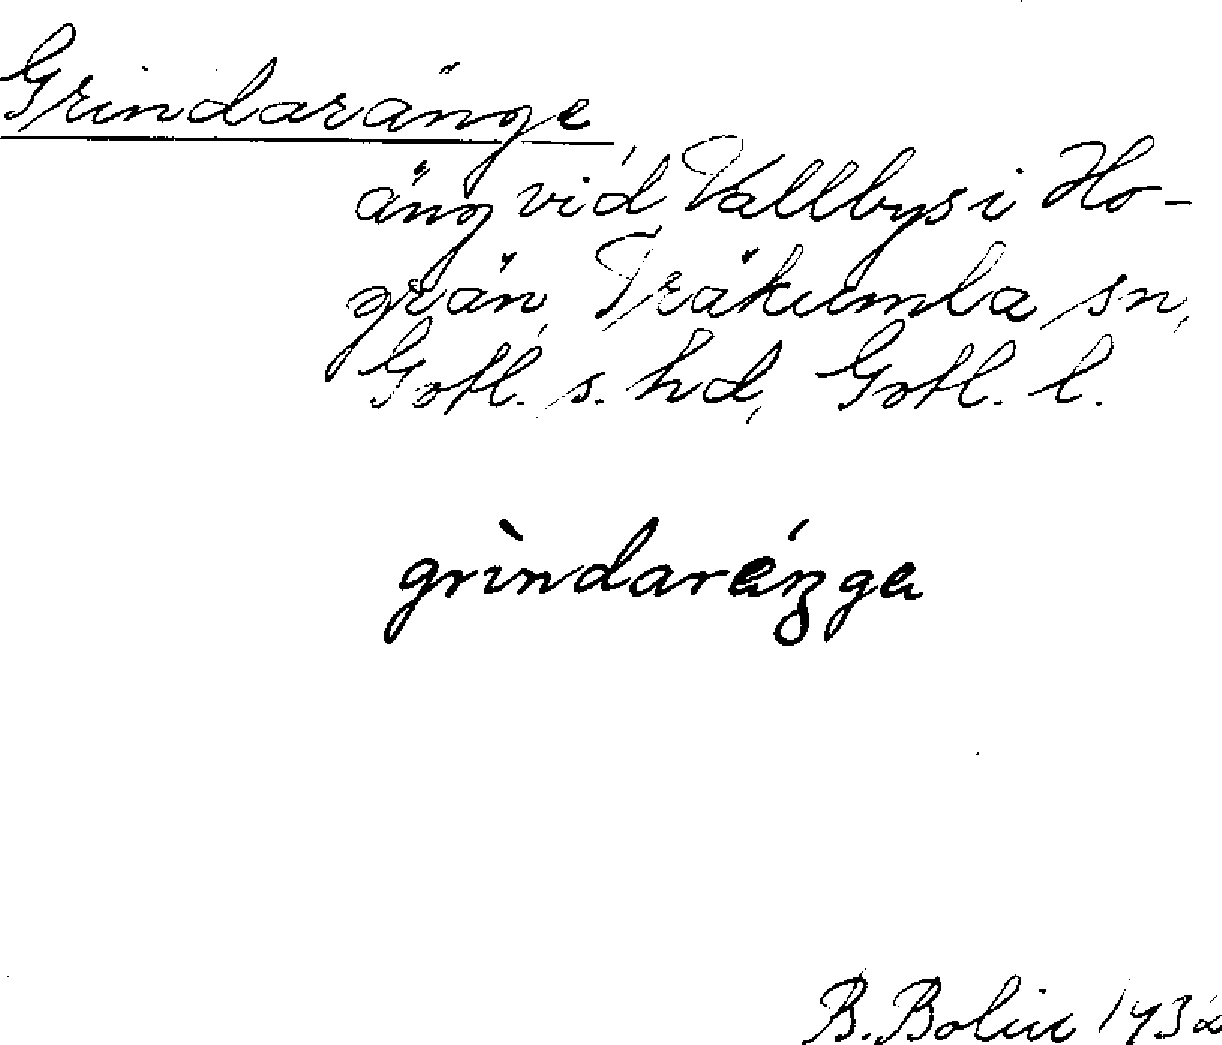 Grindaränge,
äng vid Vallbys i Ho-
grän, Träkumla sn,
Gotl. s. hd, Gotl. l.
grìndaráŋga
B. Bolin 1932